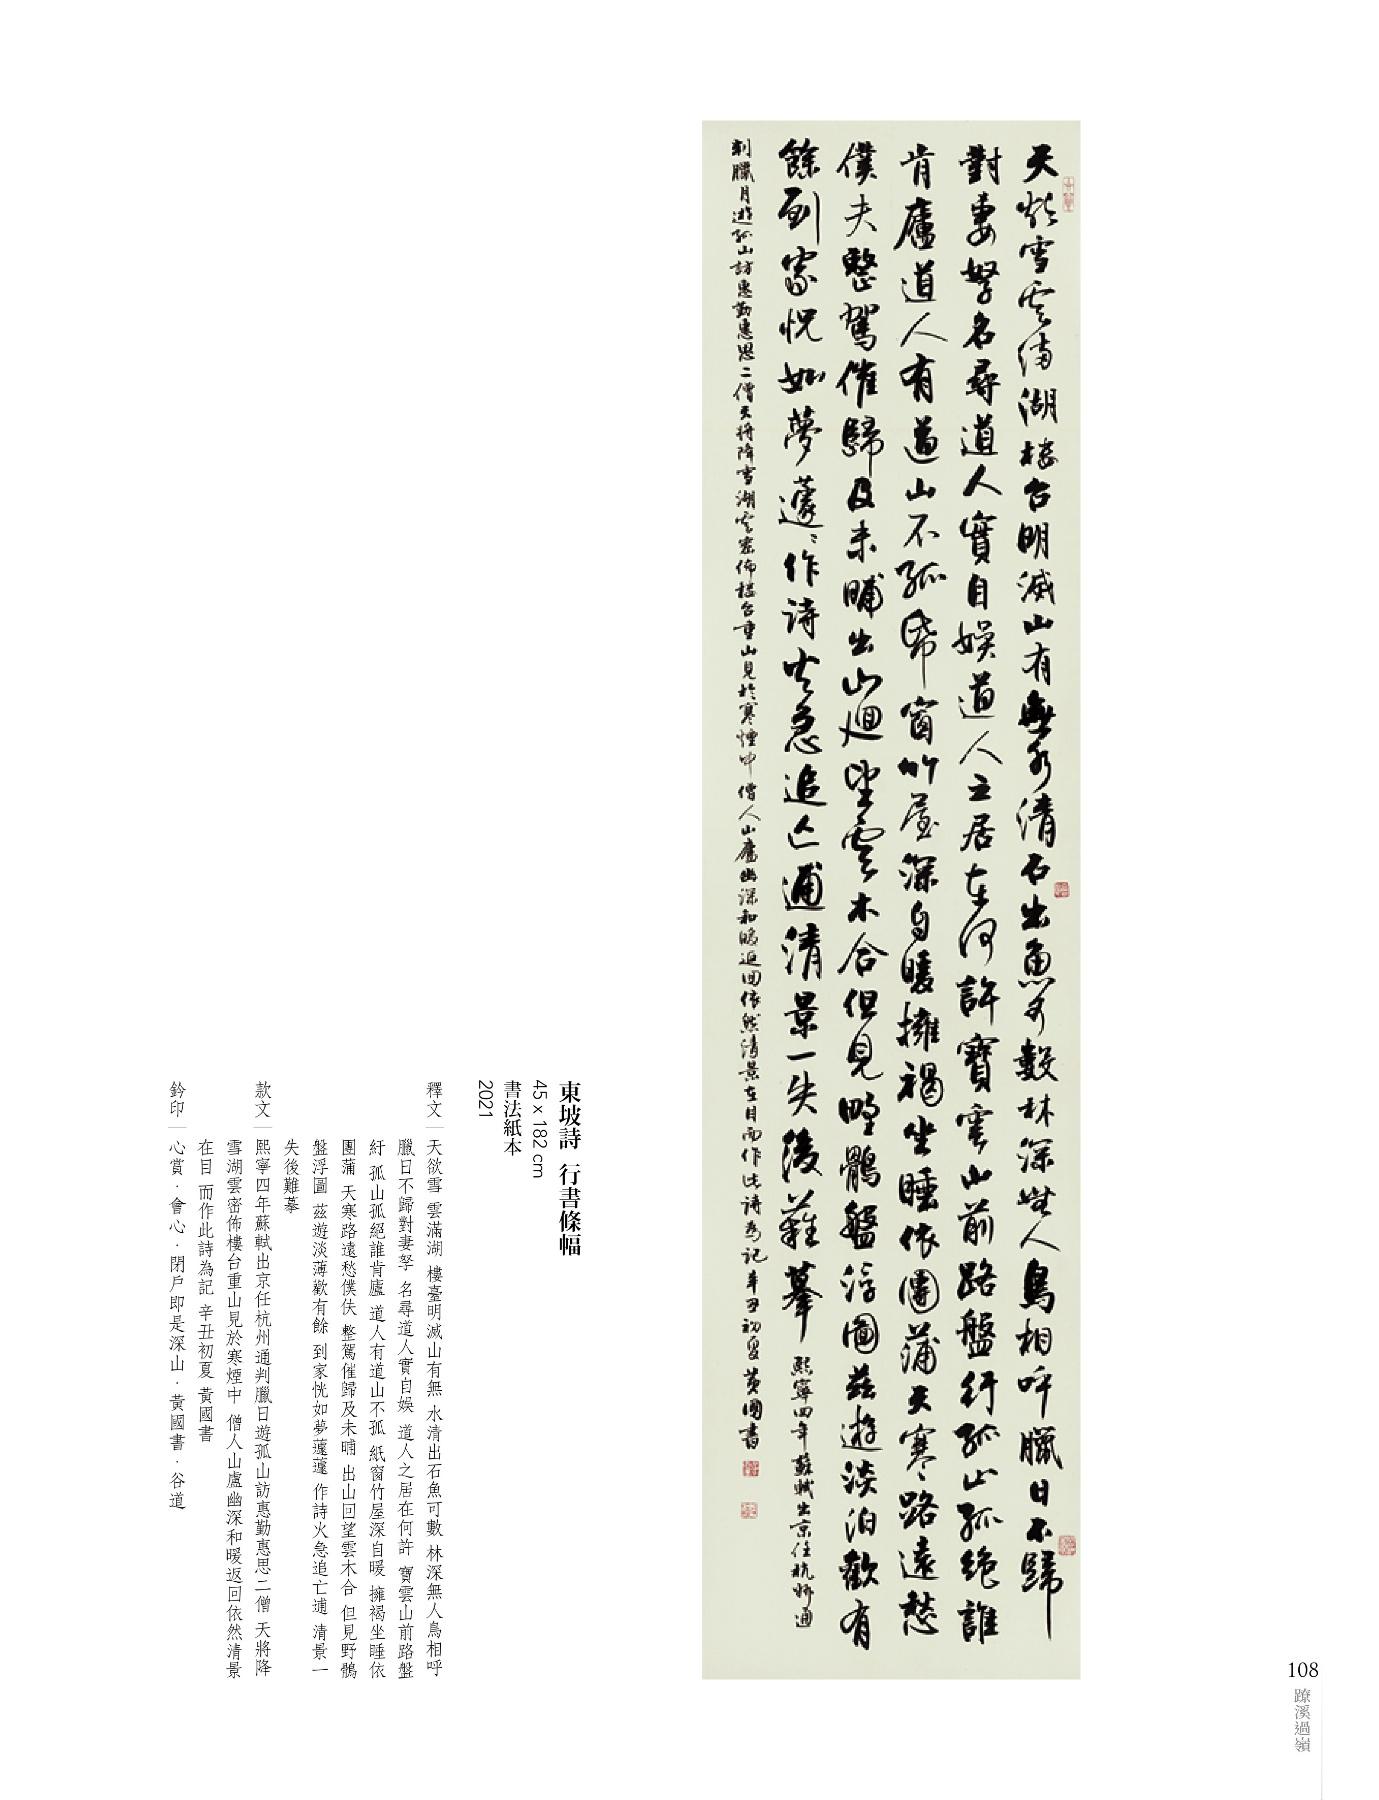 天欲雪雲滿湖樓台明滅山有無水清石出魚可數林深無人鳥相呼臘日不歸
對妻孥名尋道人實自娛道人之居在何許寶雲山前路盤紆孤山孤絕誰
肯廬道人有道山不孤紙窗竹屋深自暖擁褐坐睡依團蒲天寒路遠愁
僕夫整駕催歸及未晡出山迴望雲木合但見野鶻盤浮圖茲遊淡泊歡有
餘到家恍如夢蘧〻作詩火急追亡逋清景一失後難摹 熙寧四年蘇軾出京任杭州通
判臘月遊孤山訪惠勤惠思二僧天將降雪湖雲密佈樓台重山見於寒煙中僧人山廬幽深和暖返回依然清景在目而作此詩為記辛丑初夏黃國書
東坡詩 行書條幅
45 x 182 cm
書法紙本
2021
釋文 天欲雪 雲滿湖 樓臺明滅山有無 水清出石魚可數 林深無人鳥相呼
臘日不歸對妻孥 名尋道人實自娛 道人之居在何許 寶雲山前路盤
紆 孤山孤絕誰肯廬 道人有道山不孤 紙窗竹屋深自暖 擁褐坐睡依
團蒲 天寒路遠愁僕伕 整駕催歸及未晡 出山回望雲木合 但見野鶻
盤浮圖 茲遊淡薄歡有餘 到家恍如夢蘧蘧 作詩火急追亡逋 清景一
失後難摹
款文 熙寧四年蘇軾出京任杭州通判臘日遊孤山訪惠勤惠思二僧 天將降
雪湖雲密佈樓台重山見於寒煙中 僧人山盧幽深和暖返回依然清景
在目 而作此詩為記 辛丑初夏 黃國書
鈐印 心賞·會心·閉戶即是深山·黃國書·谷道
108
蹽溪過嶺